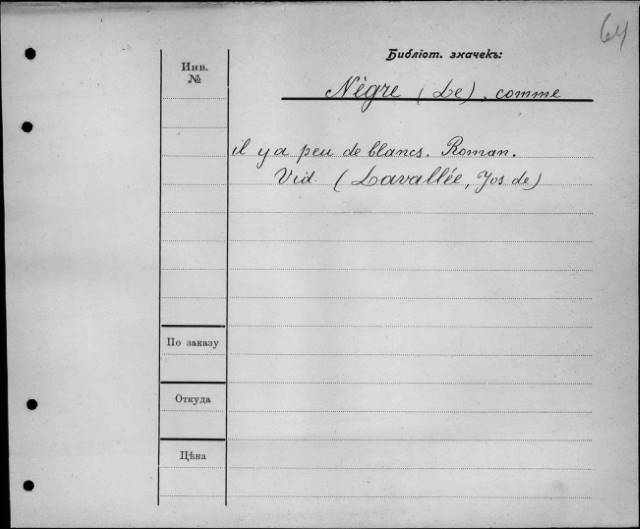 64
Библіот. значекъ:
Инв.
№
Nègre (Le), comme
il y a peu de blancs. Roman.
Vid. (Lavallée, Jos de)
По заказу
Откуда
Цѣна